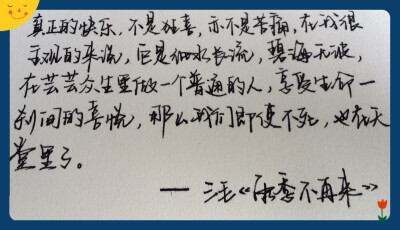 真正的快乐，不是狂喜，亦不是苦痛，在我很
主观的来说，它是细水长流，碧海无波，
在芸芸众生里做一个普通的人，享受生命一
刹间的喜悦，那么我们即使不死，也在天
堂里了。
——三毛《雨季不再来》